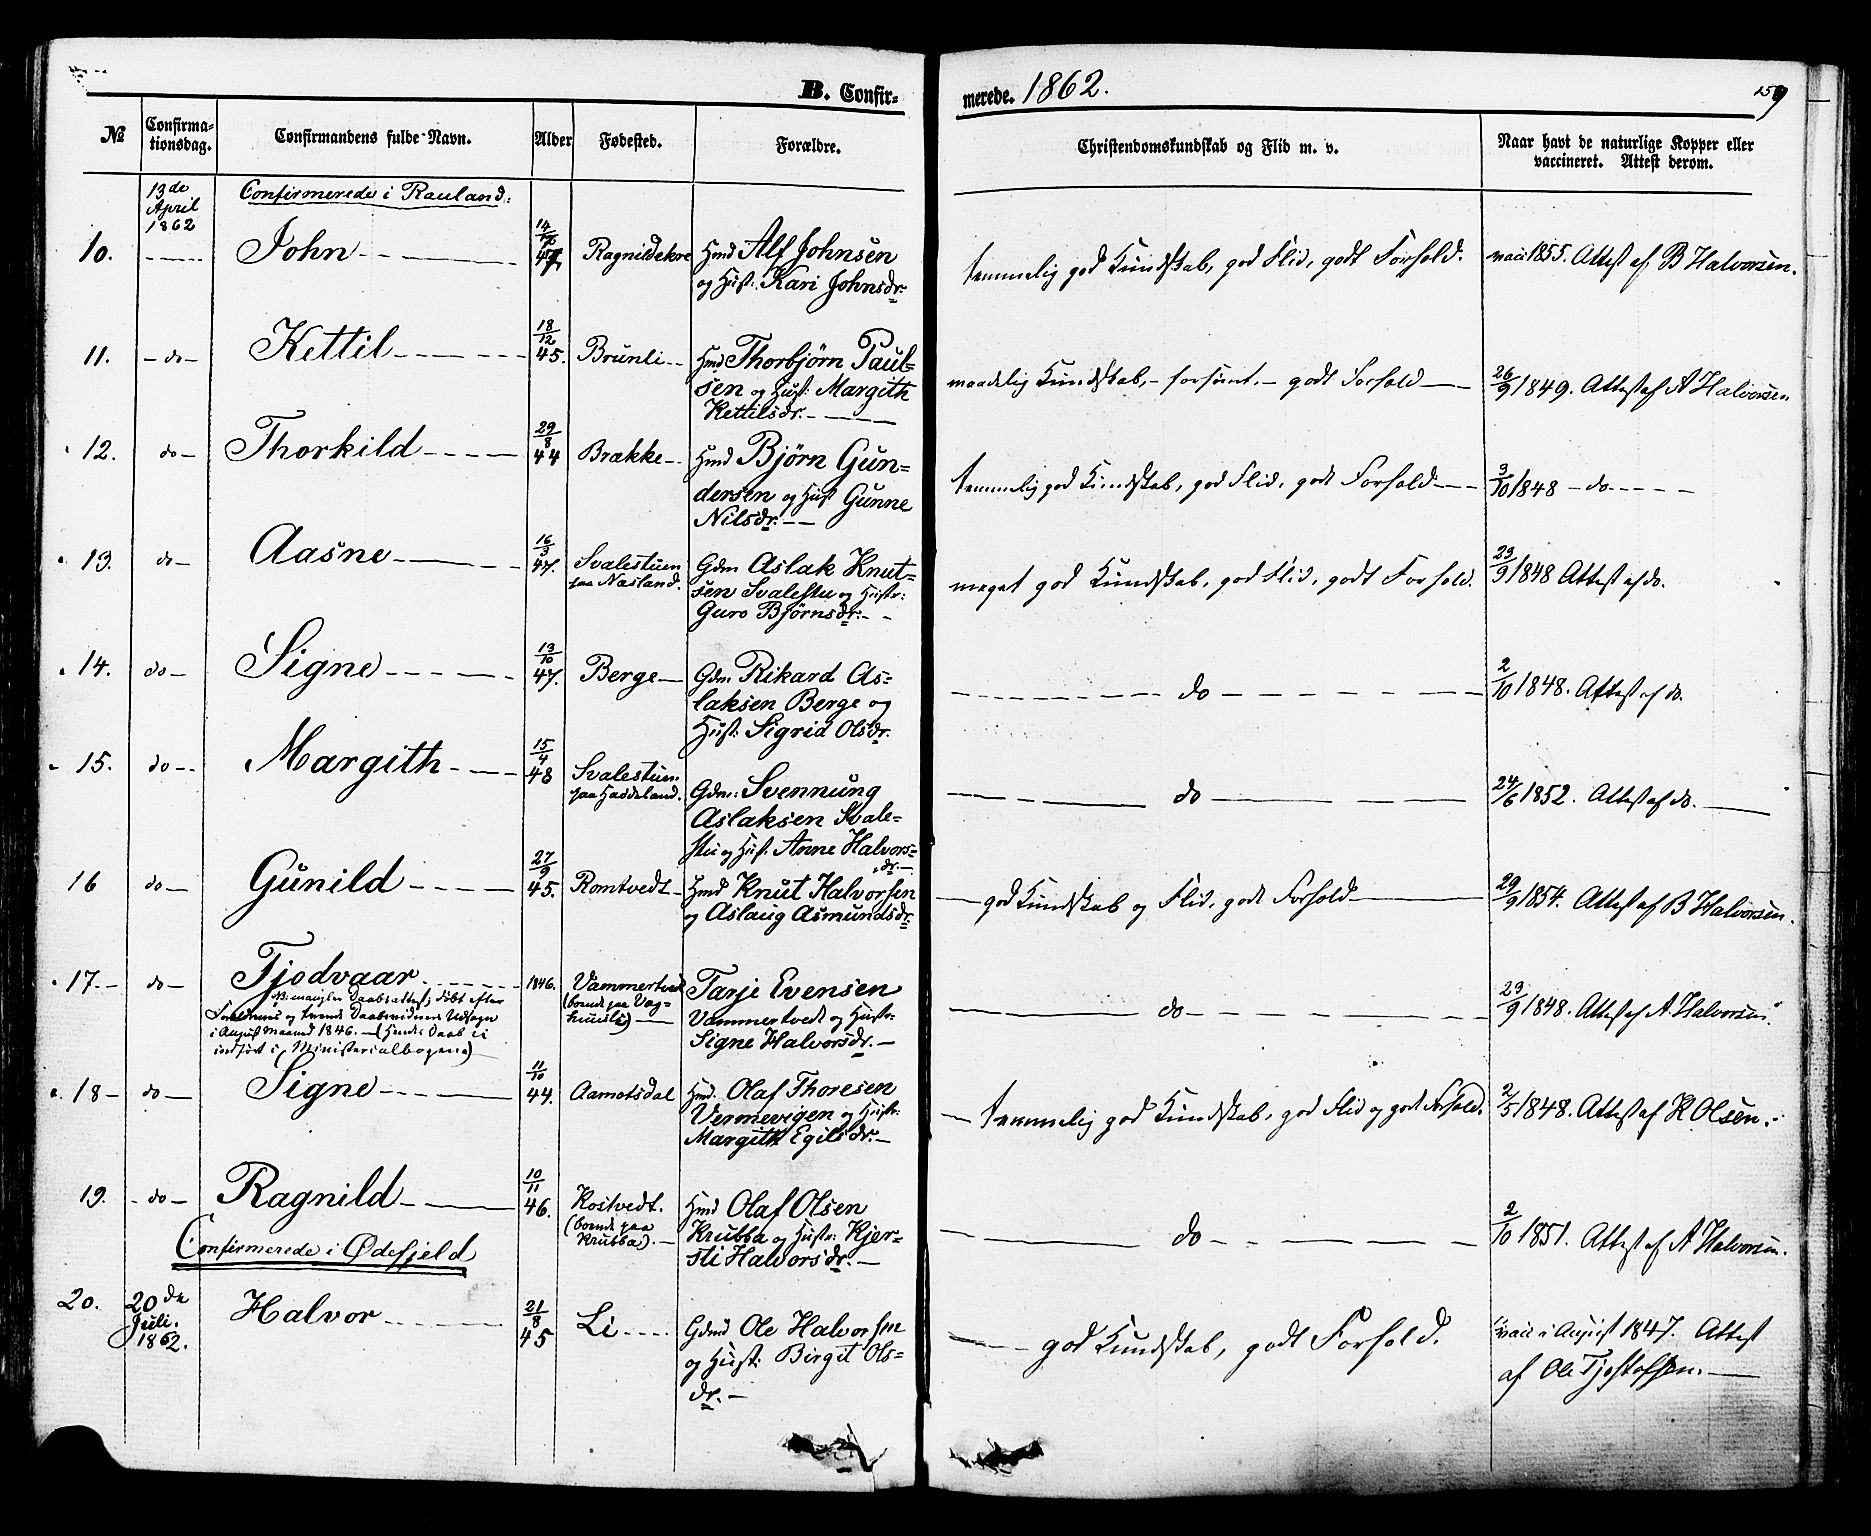 B. Confir-
merede. 1862.
159
№
Confirma-
tionsdag.
Confirmandens fulde Navn.
Alder
Fødested.
Forældre.
Christendomskundskab og Flid m. v.
Naar havt de naturlige Kopper eller
vaccineret. Attest derom.
13de
April
1862
Confirmerede i Rauland:
10. John 47 Ragnildekre Hmd Alf Johnsen
og Hust: Kari Johnsdr:
temmelig god Kundskab, god Flid, godt Forhold. vacc 1855. Attest af B Halvorsen.
11. - do - Kettil 18/12 45. Brunli Hmd Thorbjørn Paul-
sen og Hust: Margith
Kettilsdr.
maadelig Kundskab, - forsømt. - godt Forhold 26/9 1849. Attest af A Halvorsen
12. do - Thorkild 29/8 44 Brække Hmd Bjørn Gun-
dersen og Hust Gunne
Nilsdr.
temmelig god Kundskab, god Flid, godt Forhold 3/10 1848 - do
13. do - Aasne 16/3 47. Svalestuen
paa Næsland.
Gdm Aslak Knut-
sen Svalestu og Hustr:
Guro Bjørnsdr:
meget god Kundskab, god Flid, godt Forhold. 23/9 1848 Attest af do.
14. do - Signe 13/10 47. Berge Gdm. Rikard As-
laksen Berge og
Hust: Sigrid Olsdr.
do 2/10 1848. Attest af do.
15. do Margith 15/4 48 Svalestuen
paa Haddeland.
Gdm: Svennung
Aslaksen Svale-
stu og Hust: Anne Halvors-
dr.
do 24/6 1852. Attest af do.
16 do - Gunild 27/9 45. Romtvedt Hmd Knut Halvorsen
og Aslaug Asmundsdr.
god Kundskab og Flid, godt Forhold 29/9 1854. Attest af B Halvorsen.
17. do - Tjodvaar 1846. Vammertvedt
(boende paa Vaag-
huuslid)
Tarje Evensen
Vammertvedt og Hustr:
Signe Halvorsdr.
NB. mangler Daabsattest; døbt efter
Forældrenes og tvende Daabsvidners Udsagn
i August Maaned 1846. - (Hendes Daab ei
indført i Ministerialbogen)
do 23/9 1848. Attest af A. Halvorsen.
18 - do - Signe 11/10 44. Aamotsdal Hmd. Olaf Thoresen
Vermevigen og Hustr:
Margith Egilsdr.
temmelig god Kundskab, god Flid og godt Forhold. 2/5 1848. Attest af K Olsen.
19. - do - Ragnild 10/11 46. Kostvedt.
(boende paa
Krubba).
Hmd Olaf Olsen
Krubba og Hustr: Kjer-
sti Halvorsdr.
do 2/10 1851. Attest af A Halvorsen.
Confirmerede i Ødefjeld
20. 20de
Juli.
1862.
Halvor 21/8 45 Li Gdmd Ole Halvorsen
og Hust: Birgit Ols-
dr.
god Kundskab, godt Forhold. vacc i August 1847. Attest
af Ole Tjostofsen.